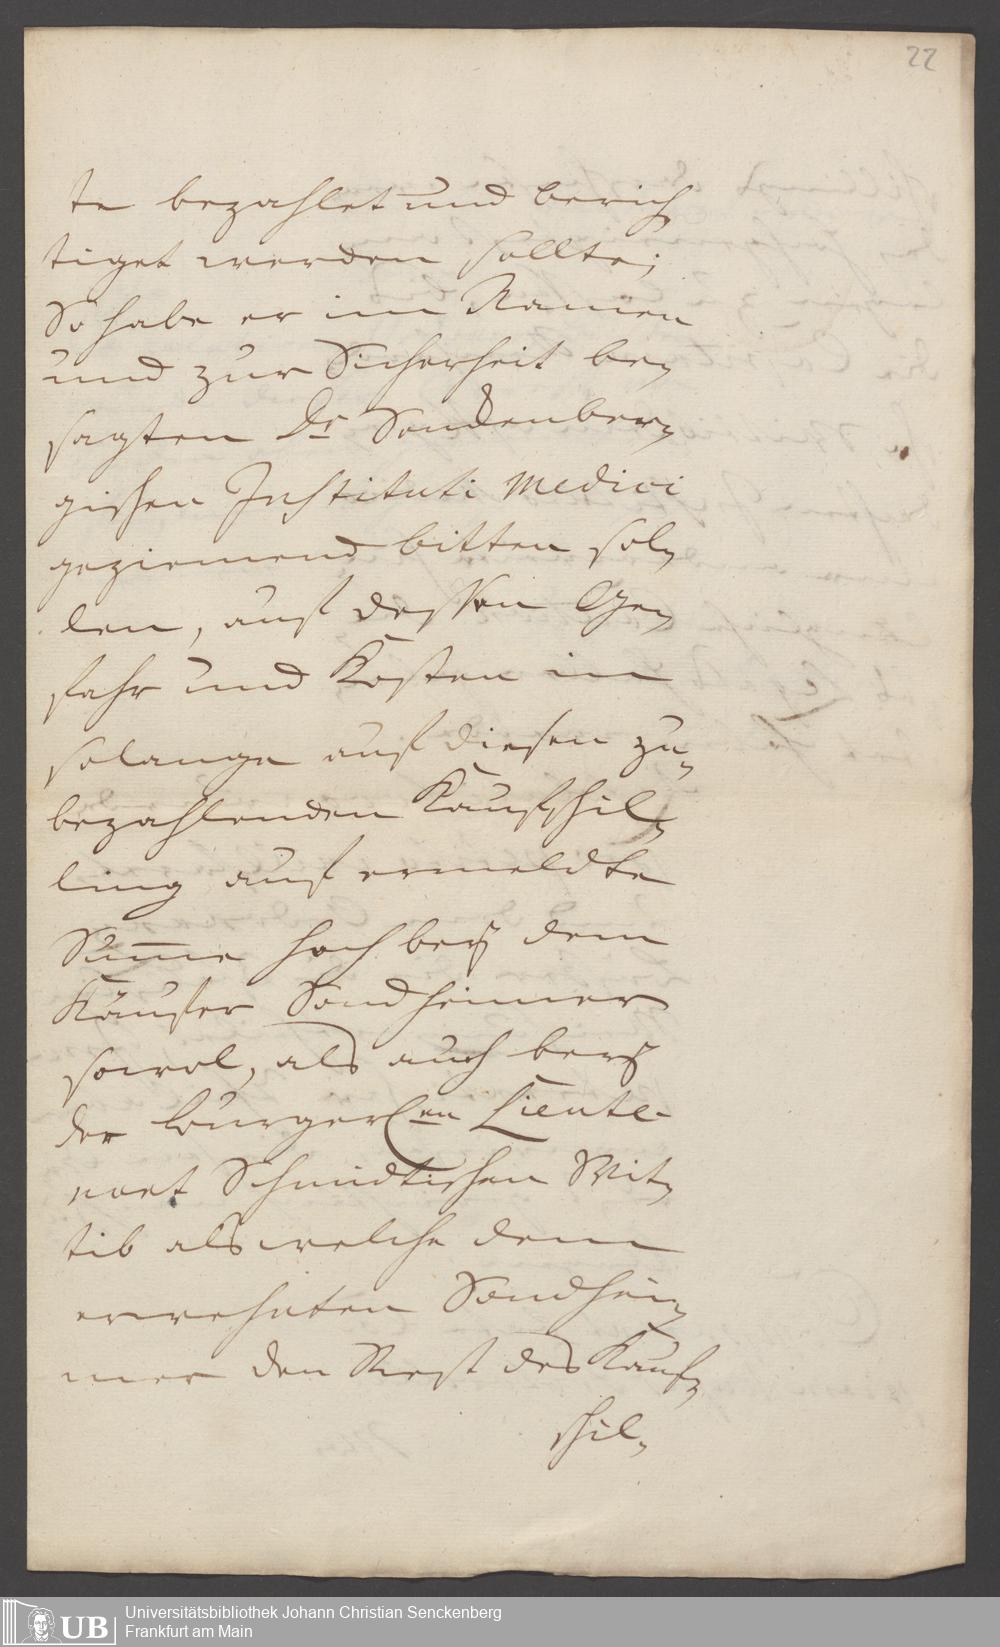 22
te bezahlet und berich,
tiget werden sollte;
So habe er im Namen
und zur Sicherheit be,
sagten Dr Senckenber,
gischen Instituti Medici
geziemend bitten sol,
len, auf dessen Ge,
fahr und Kosten
solange auf diesen zu,
bezahlenden Kaufschil,
ling auf ermeldte
Sum̄e hoch bey dem
Käufer Sondheimer
sowol, als auch bey
der burgerl.en Lieute-
nant Schmidtischen Wit,
tib als welche dem
erwehnten Sondhei,
mer den Rest des Kauf,
schil,
UB
Universitätsbibliothek Johann Christian Senckenberg
Frankfurt am Main